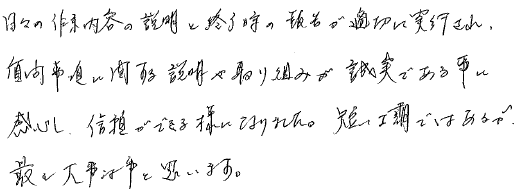 日々の作業内容の説明と終了時の報告が適切に実行され、
質問事項に関する説明や取り組みが誠実である事に
感心し、信頼ができる様になりました。短い工期ではあるが、
最も大事な事と思います。